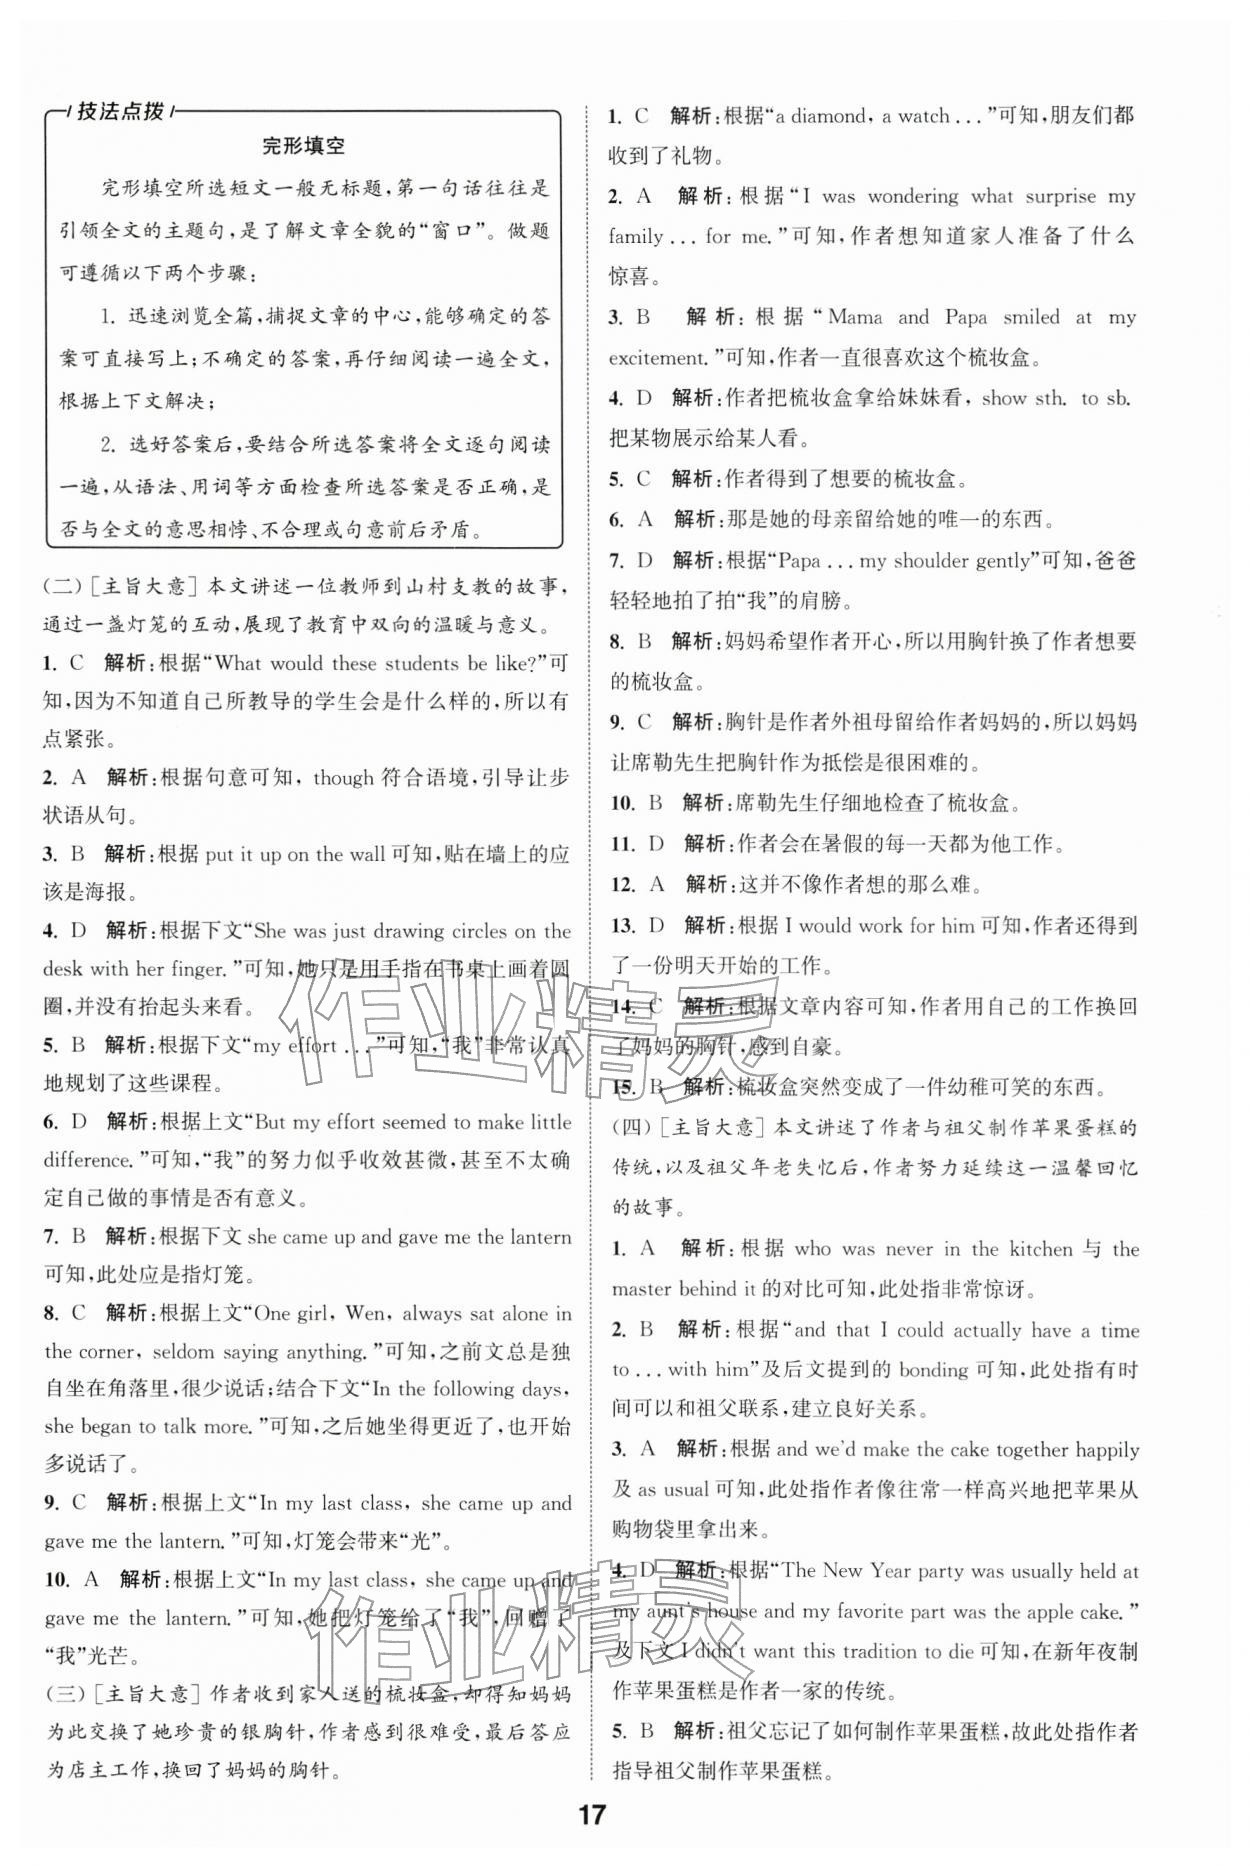 技法点拨
完形填空
完形填空所选短文一般无标题,第一句话往往是
引领全文的主题句,是了解文章全貌的“窗口”。做题
可遵循以下两个步骤:
1. 迅速浏览全篇,捕捉文章的中心,能够确定的答
案可直接写上;不确定的答案,再仔细阅读一遍全文,
根据上下文解决;
2. 选好答案后,要结合所选答案将全文逐句阅读
一遍,从语法、用词等方面检查所选答案是否正确,是
否与全文的意思相悖、不合理或句意前后矛盾。
(二)[主旨大意]本文讲述一位教师到山村支教的故事,
通过一盏灯笼的互动,展现了教育中双向的温暖与意义。
1. C 解析:根据“What would these students be like?”可
知,因为不知道自己所教导的学生会是什么样的,所以有
点紧张。
2. A 解析:根据句意可知,though符合语境,引导让步
状语从句。
3. B 解析:根据 put it up on the wall 可知,贴在墙上的应
该是海报。
4. D 解析:根据下文“She was just drawing circles on the
desk with her finger.”可知,她只是用手指在书桌上画着圆
圈,并没有抬起头来看。
5. B 解析:根据下文“my effort ...”可知,“我”非常认真
地规划了这些课程。
6. D 解析:根据上文“But my effort seemed to make little
difference.”可知,“我”的努力似乎收效甚微,甚至不太确
定自己做的事情是否有意义。
7. B 解析:根据下文 she came up and gave me the lantern
可知,此处应是指灯笼。
8. C 解析:根据上文“One girl, Wen, always sat alone in
the corner, seldom saying anything.”可知,之前文总是独
自坐在角落里,很少说话;结合下文“In the following days,
she began to talk more.”可知,之后她坐得更近了,也开始
多说话了。
9. C 解析:根据上文“In my last class, she came up and
gave me the lantern.”可知,灯笼会带来“光”。
10. A 解析:根据上文“In my last class, she came up and
gave me the lantern.”可知,她把灯笼给了“我”,回赠了
“我”光芒。
(三)[主旨大意]作者收到家人送的梳妆盒,却得知妈妈
为此交换了她珍贵的银胸针,作者感到很难受,最后答应
为店主工作,换回了妈妈的胸针。
1. C 解析:根据“a diamond, a watch ...”可知,朋友们都
收到了礼物。
2. A 解析:根据“I was wondering what surprise my
family ... for me.”可知,作者想知道家人准备了什么
惊喜。
3. B 解析:根据“Mama and Papa smiled at my
excitement.”可知,作者一直很喜欢这个梳妆盒。
4. D 解析:作者把梳妆盒拿给妹妹看,show sth. to sb.
把某物展示给某人看。
5. C 解析:作者得到了想要的梳妆盒。
6. A 解析:那是她的母亲留给她的唯一的东西。
7. D 解析:根据“Papa ... my shoulder gently”可知,爸爸
轻轻地拍了拍“我”的肩膀。
8. B 解析:妈妈希望作者开心,所以用胸针换了作者想要
的梳妆盒。
9. C 解析:胸针是作者外祖母留给作者妈妈的,所以妈妈
让席勒先生把胸针作为抵偿是很困难的。
10. B 解析:席勒先生仔细地检查了梳妆盒。
11. D 解析:作者会在暑假的每一天都为他工作。
12. A 解析:这并不像作者想的那么难。
13. D 解析:根据 I would work for him 可知,作者还得到
了一份明天开始的工作。
14. C 解析:根据文章内容可知,作者用自己的工作换回
了妈妈的胸针,感到自豪。
15. B 解析:梳妆盒突然变成了一件幼稚可笑的东西。
(四)[主旨大意]本文讲述了作者与祖父制作苹果蛋糕的
传统,以及祖父年老失忆后,作者努力延续这一温馨回忆
的故事。
1. A 解析:根据 who was never in the kitchen 与 the
master behind it 的对比可知,此处指非常惊讶。
2. B 解析:根据“and that I could actually have a time
to ... with him”及后文提到的 bonding 可知,此处指有时
间可以和祖父联系,建立良好关系。
3. A 解析:根据 and we'd make the cake together happily
及 as usual 可知,此处指作者像往常一样高兴地把苹果从
购物袋里拿出来。
4. D 解析:根据“The New Year party was usually held at
my aunt's house and my favorite part was the apple cake.”
及下文 I didn't want this tradition to die 可知,在新年夜制
作苹果蛋糕是作者一家的传统。
5. B 解析:祖父忘记了如何制作苹果蛋糕,故此处指作者
指导祖父制作苹果蛋糕。
作业精灵
作业精灵
17